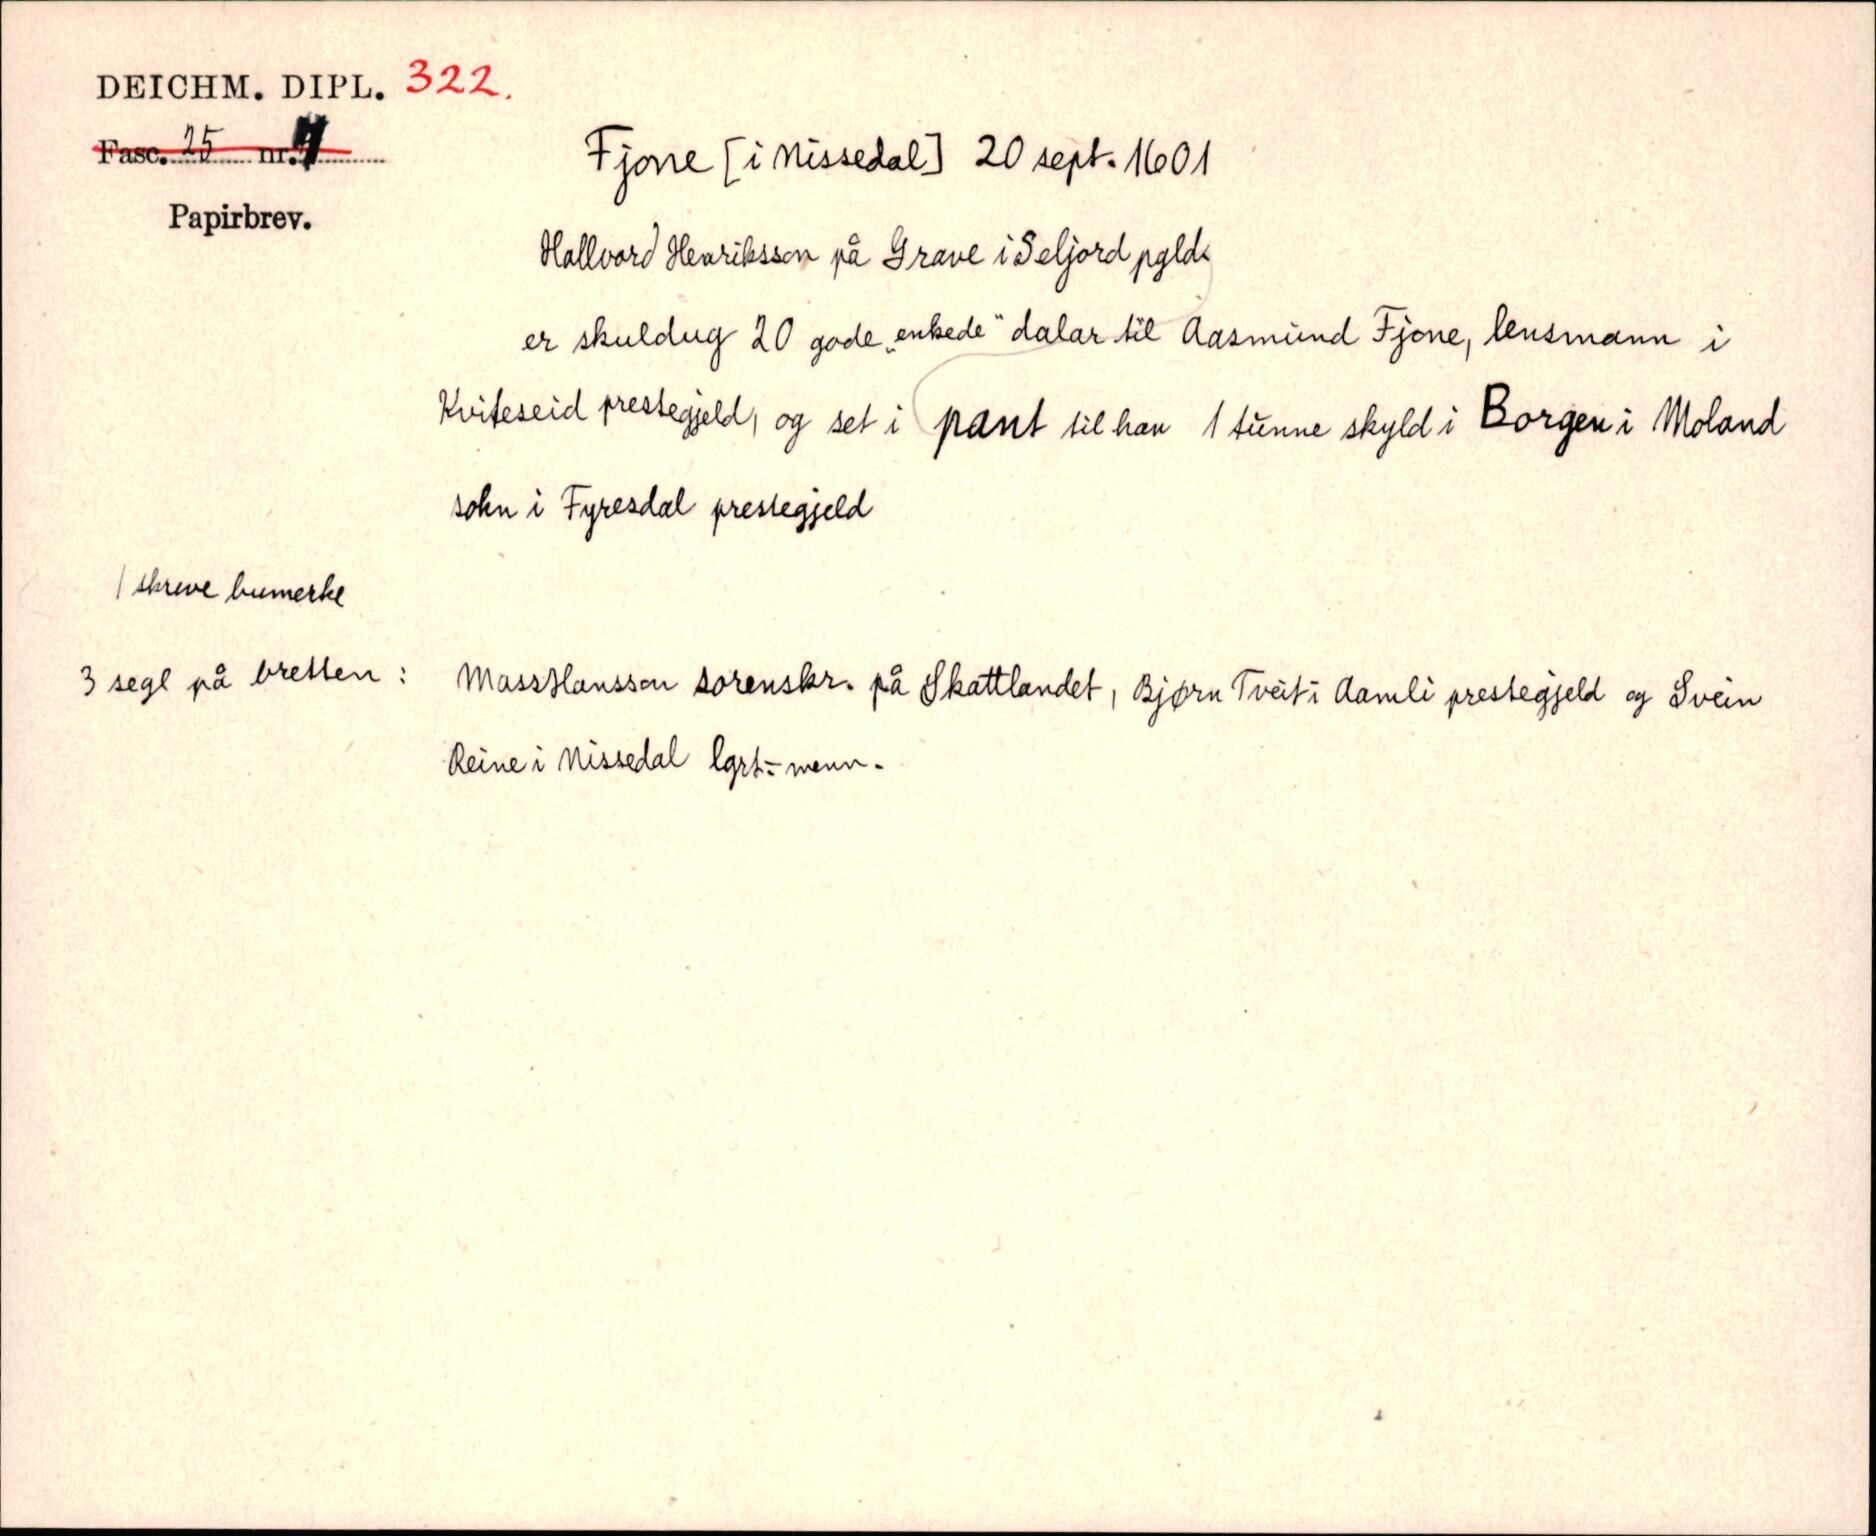 DEICHM. DIPL. 322.
Fasc. 25 nr.
Papirbrev.
Fjone [i Nissedal] 20 sept. 1601
Hallvard Henriksson på Grave i Seljord pgld.
er skuldug 20 gode „enkede“ dalar til Aasmund Fjone, lensmann i
Kviteseid prestegjeld, og set i pant til han 1 tunne skyld i Borgen i Moland
sokn i Fyresdal prestegjeld
1 skreve bumerke
3 segl på bretten : Mass Hansson sorenskr. på Skattlandet, Bjørn Tveit i Aamli prestegjeld og Svein
Reine i Nissedal lgrt.-menn.